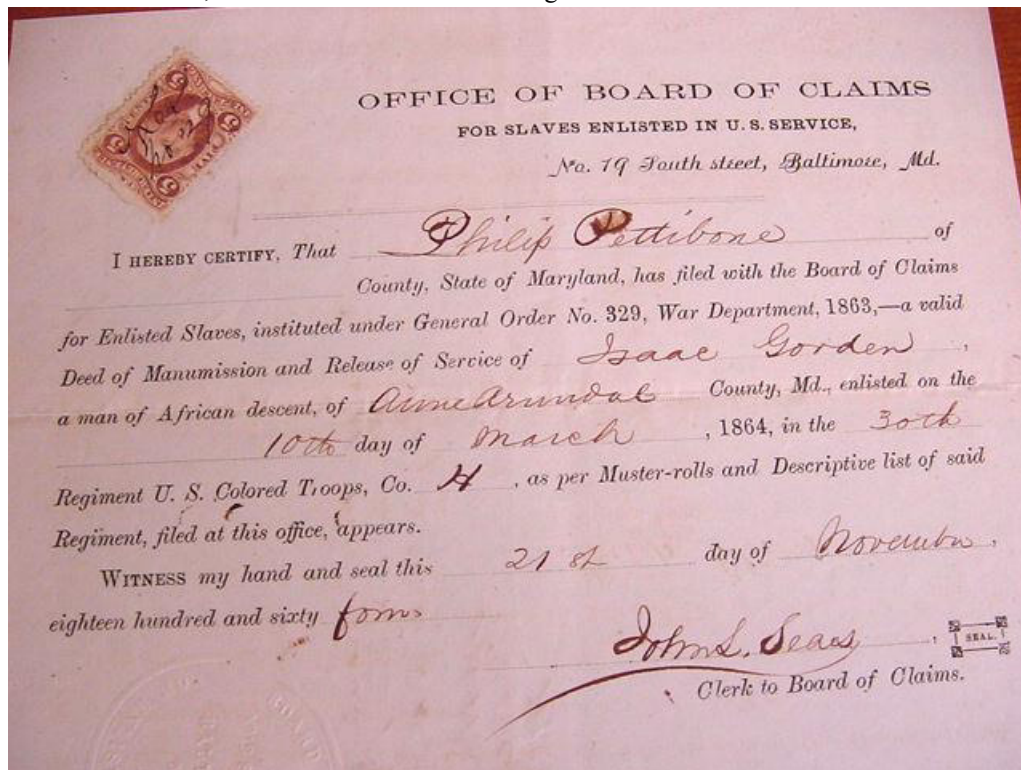 OFFICE OF BOARD OF CLAIMS
FOR SLAVES ENLISTED IN U. S. SERVICE,
No. 19 South street, Baltimore, Md.
I HEREBY CERTIFY, That Philip Pettibone of
County, State of Maryland, has filed with the Board of Claims
for Enlisted Slaves, instituted under General Order No. 329, War Department, 1863,—a valid
Deed of Manumission and Release of Service of Isaac Gorden,
a man of African descent, of Anne Arundal County, Md., enlisted on the
10th day of March, 1864, in the 30th
Regiment U. S. Colored Troops, Co. H, as per Muster-rolls and Descriptive list of said
Regiment, filed at this office, appears.
WITNESS my hand and seal this 21st day of November,
eighteen hundred and sixty four
John S. Sears, SEAL.
Clerk to Board of Claims.